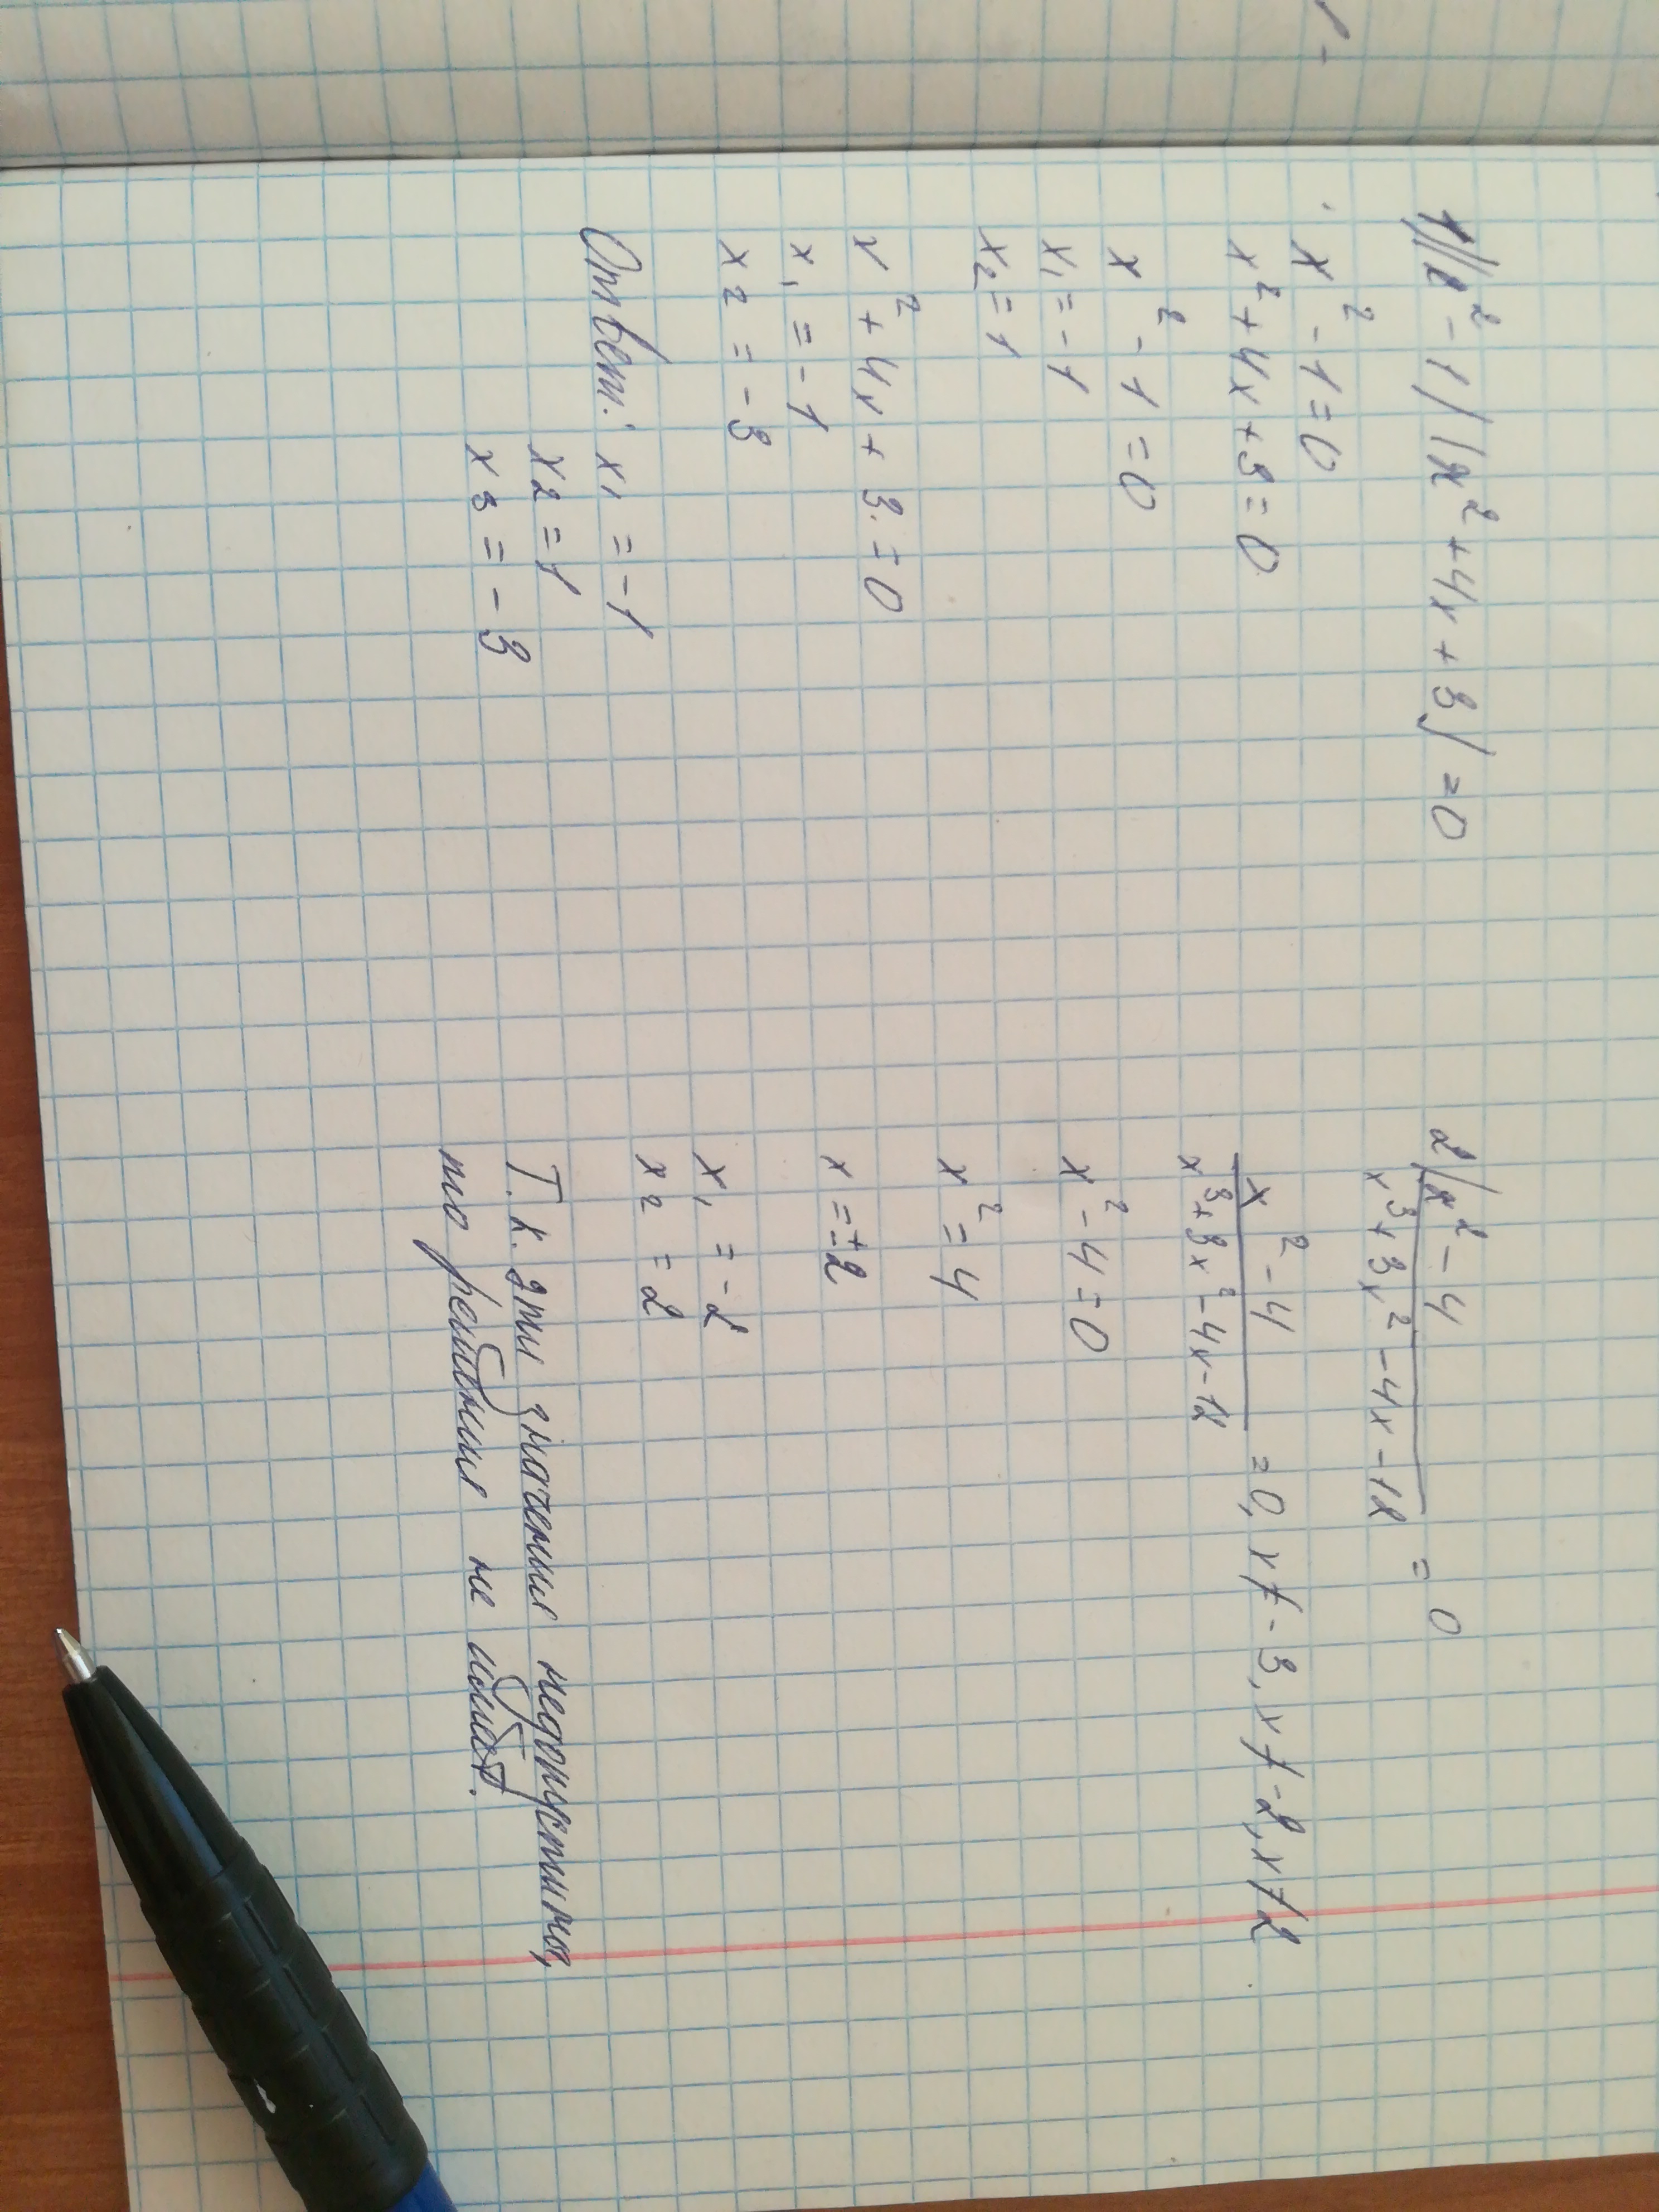 1) (x² - 1) (x² + 4x + 3) = 0
x² - 1 = 0
x² + 4x + 3 = 0
x² - 1 = 0
x₁ = -1
x₂ = 1
x² + 4x + 3 = 0
x₁ = -1
x₂ = -3
Ответ: x₁ = -1
x₂ = 1
x₃ = -3
2) x² - 4
x³ + 3x² - 4x - 12 = 0
x² - 4
x³ + 3x² - 4x - 12 = 0, x ≠ -3, x ≠ -2, x ≠ 2
x² - 4 = 0
x² = 4
x = ±2
x₁ = -2
x₂ = 2
Т.к. эти значения недопустимы,
то решения не имеет.